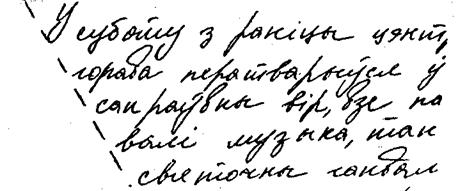 У суботу з раніцы цэнт,
горада ператварыўся ў
сапраўдны вір, дзе па
валі музыка, тан
святочны гандал